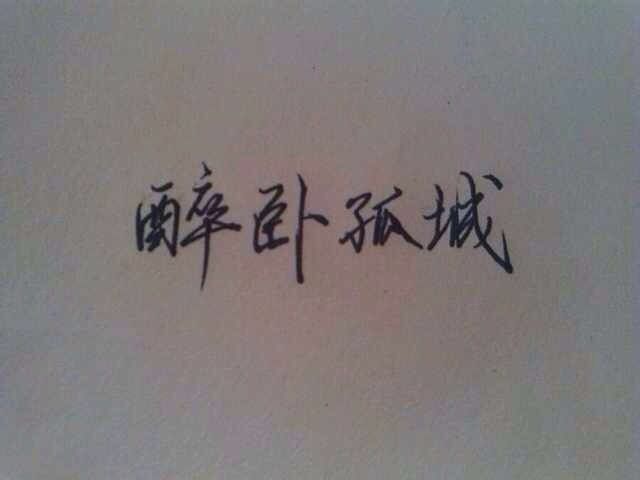 醉卧孤城